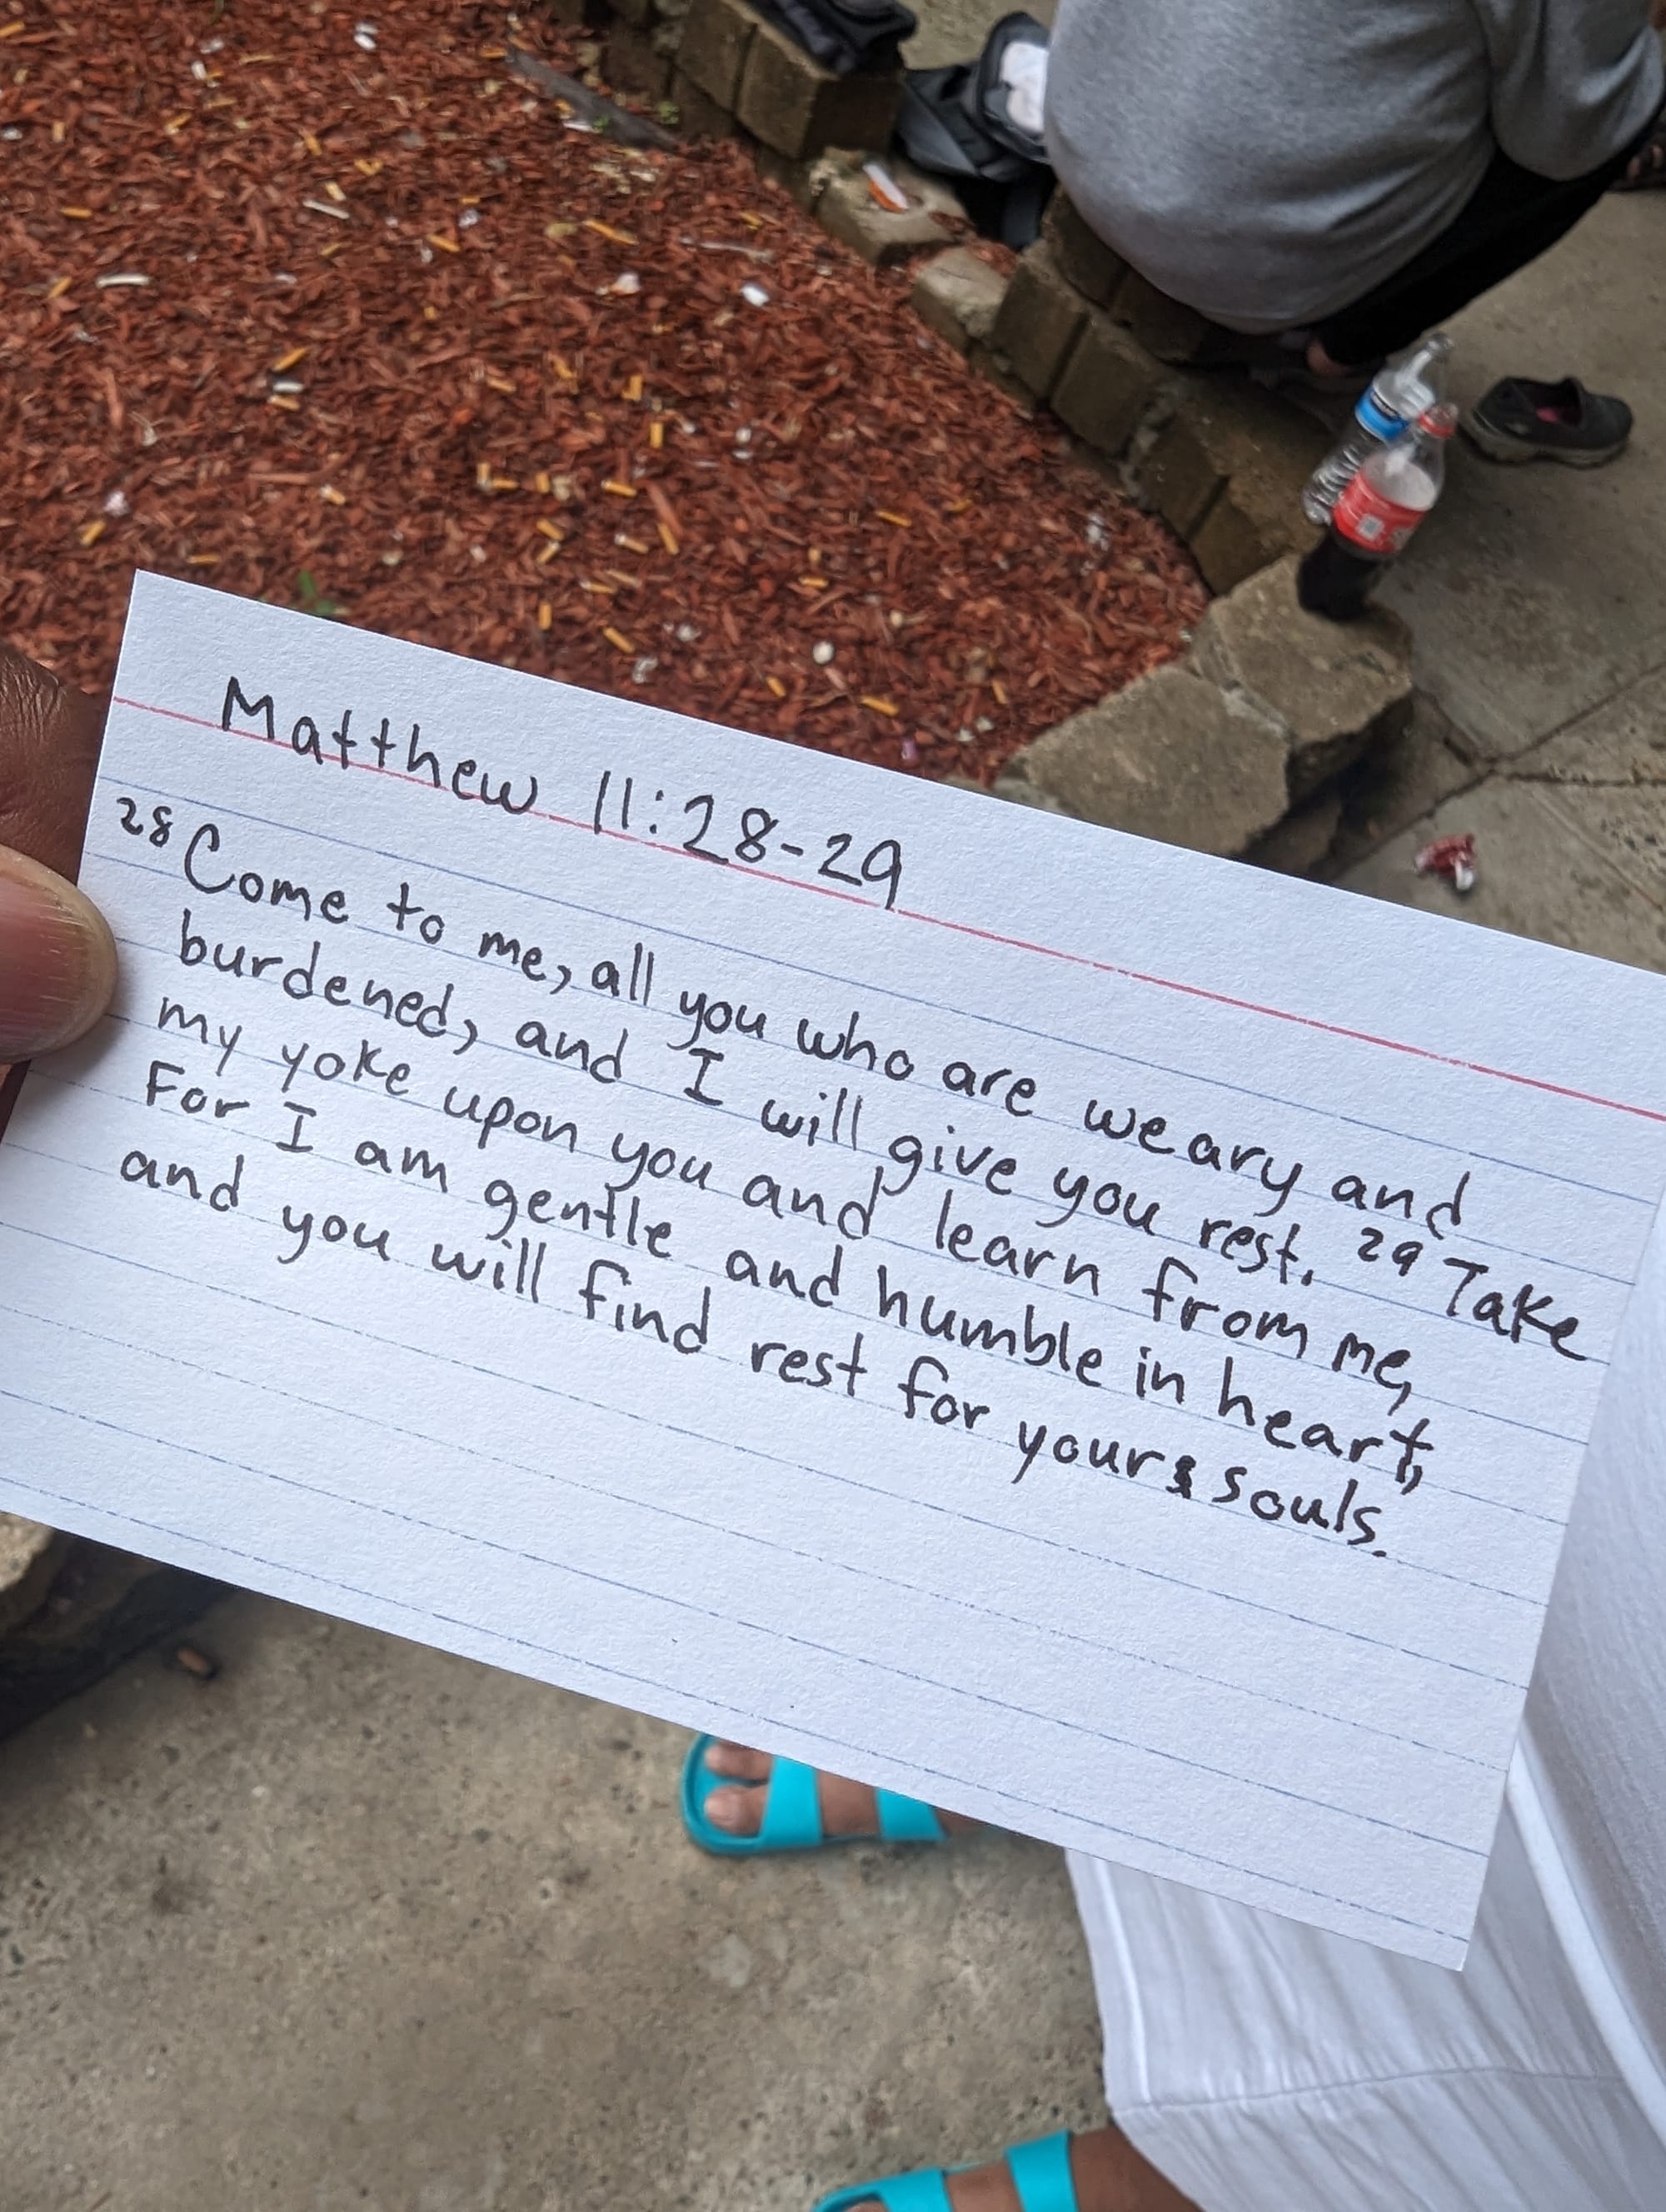 Matthew 11:28-29
28 Come to me, all you who are weary and
burdened, and I will give you rest. 29 Take
my yoke upon you and learn from me,
For I am gentle and humble in heart,
and you will find rest for your souls.